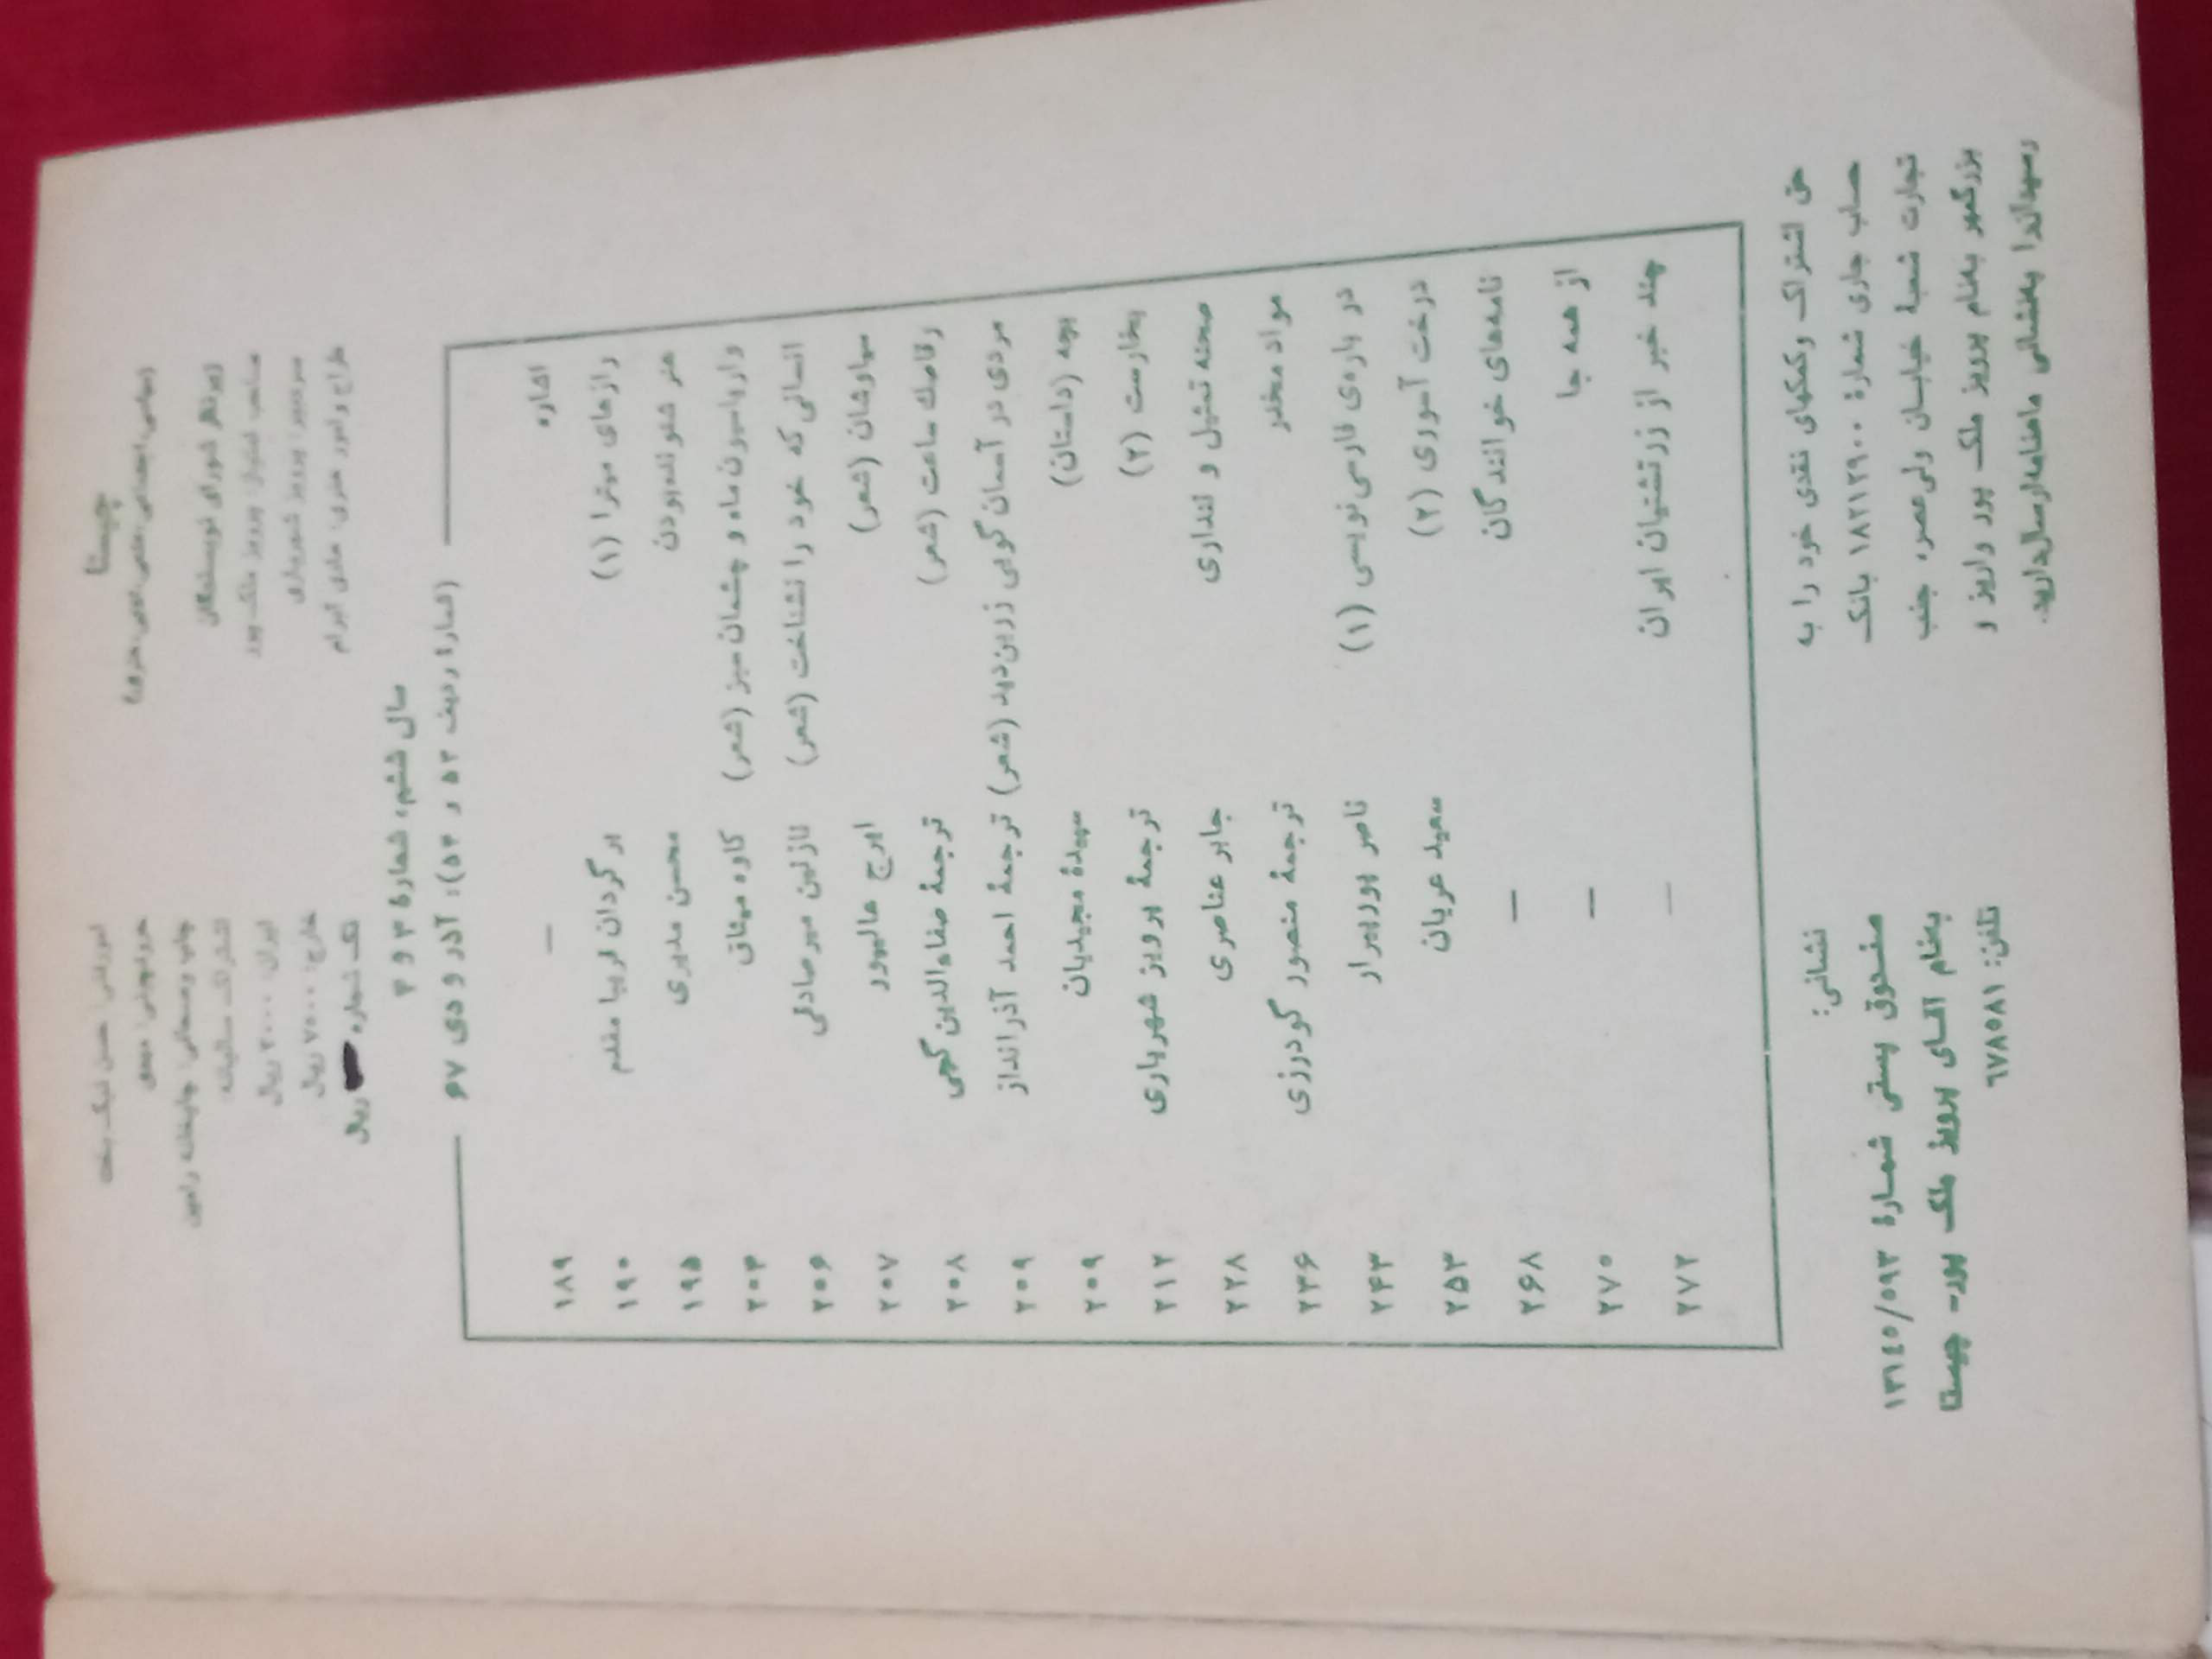 چیستا
(سیاسی، اجتماعی، علمی، ادبی، هنری)
زیر نظر شورای نویسندگان
صاحب امتیاز: پرویز ملک‌پور
سردبیر: پرویز شهریاری
طراح و امور هنری: هادی
امور فنی: حسن نیک‌بخت
حروفچینی:
چاپ و صحافی: چاپخانه رامین
اشتراک سالیانه
ایران: ۲۰۰۰ ریال
خارج: ۷۵۰۰ ریال
تک شماره ریال
سال ششم، شمارهٔ ۳ و ۴
(شمارهٔ ردیف ۵۳ و ۵۴): آذر و دی ۶۷
اشاره — ۱۸۹
رازهای میترا (۱) برگردان فریبا مقدم ۱۹۰
هنر شنونده‌بودن محسن مدیری ۱۹۵
واریاسیون ماه و چشمان سبز (شعر) کاوه میثاق ۲۰۴
انسانی که خود را نشناخت (شعر) نازنین میرصادقی ۲۰۶
سیاوشان (شعر) ایرج عالیپور ۲۰۷
رقاصک ساعت (شعر) ترجمهٔ صفاءالدین گچی ۲۰۸
مردی در آسمان گویی زرین دید (شعر) ترجمهٔ احمد آذرانداز ۲۰۹
بچه (داستان) سپیدهٔ مجیدیان ۲۰۹
بخارست (۲) ترجمهٔ پرویز شهریاری ۲۱۲
صحنه تمثیل و نقداری جابر عناصری ۲۲۸
مواد مخدر ترجمهٔ منصور گودرزی ۲۳۶
در باره‌ی فارسی‌نویسی (۱) ناصر پورپیرار ۲۴۳
درخت آسوری (۲) سعید عریان ۲۵۳
نامه‌های خوانندگان — ۲۶۸
از همه جا — ۲۷۰
چند خبر از زرتشتیان ایران — ۲۷۲
حق اشتراک وکمکهای نقدی خود را به
حساب جاری شمارهٔ ۱۸۲۱۲۹۰۰ بانک
تجارت شعبهٔ خیابان ولی‌عصر، جنب
بزرگمهر بنام پرویز ملک پور واریز و
رسیدآنرا به‌نشانی ماهنامه‌ارسال‌دارید.
نشانی:
صندوق پستی شمارهٔ ۱۳۱٤٥/٥۹۳
بنام آقای پرویز ملک پور- چیستا
تلفن: ٦٧٨٥٠٨١